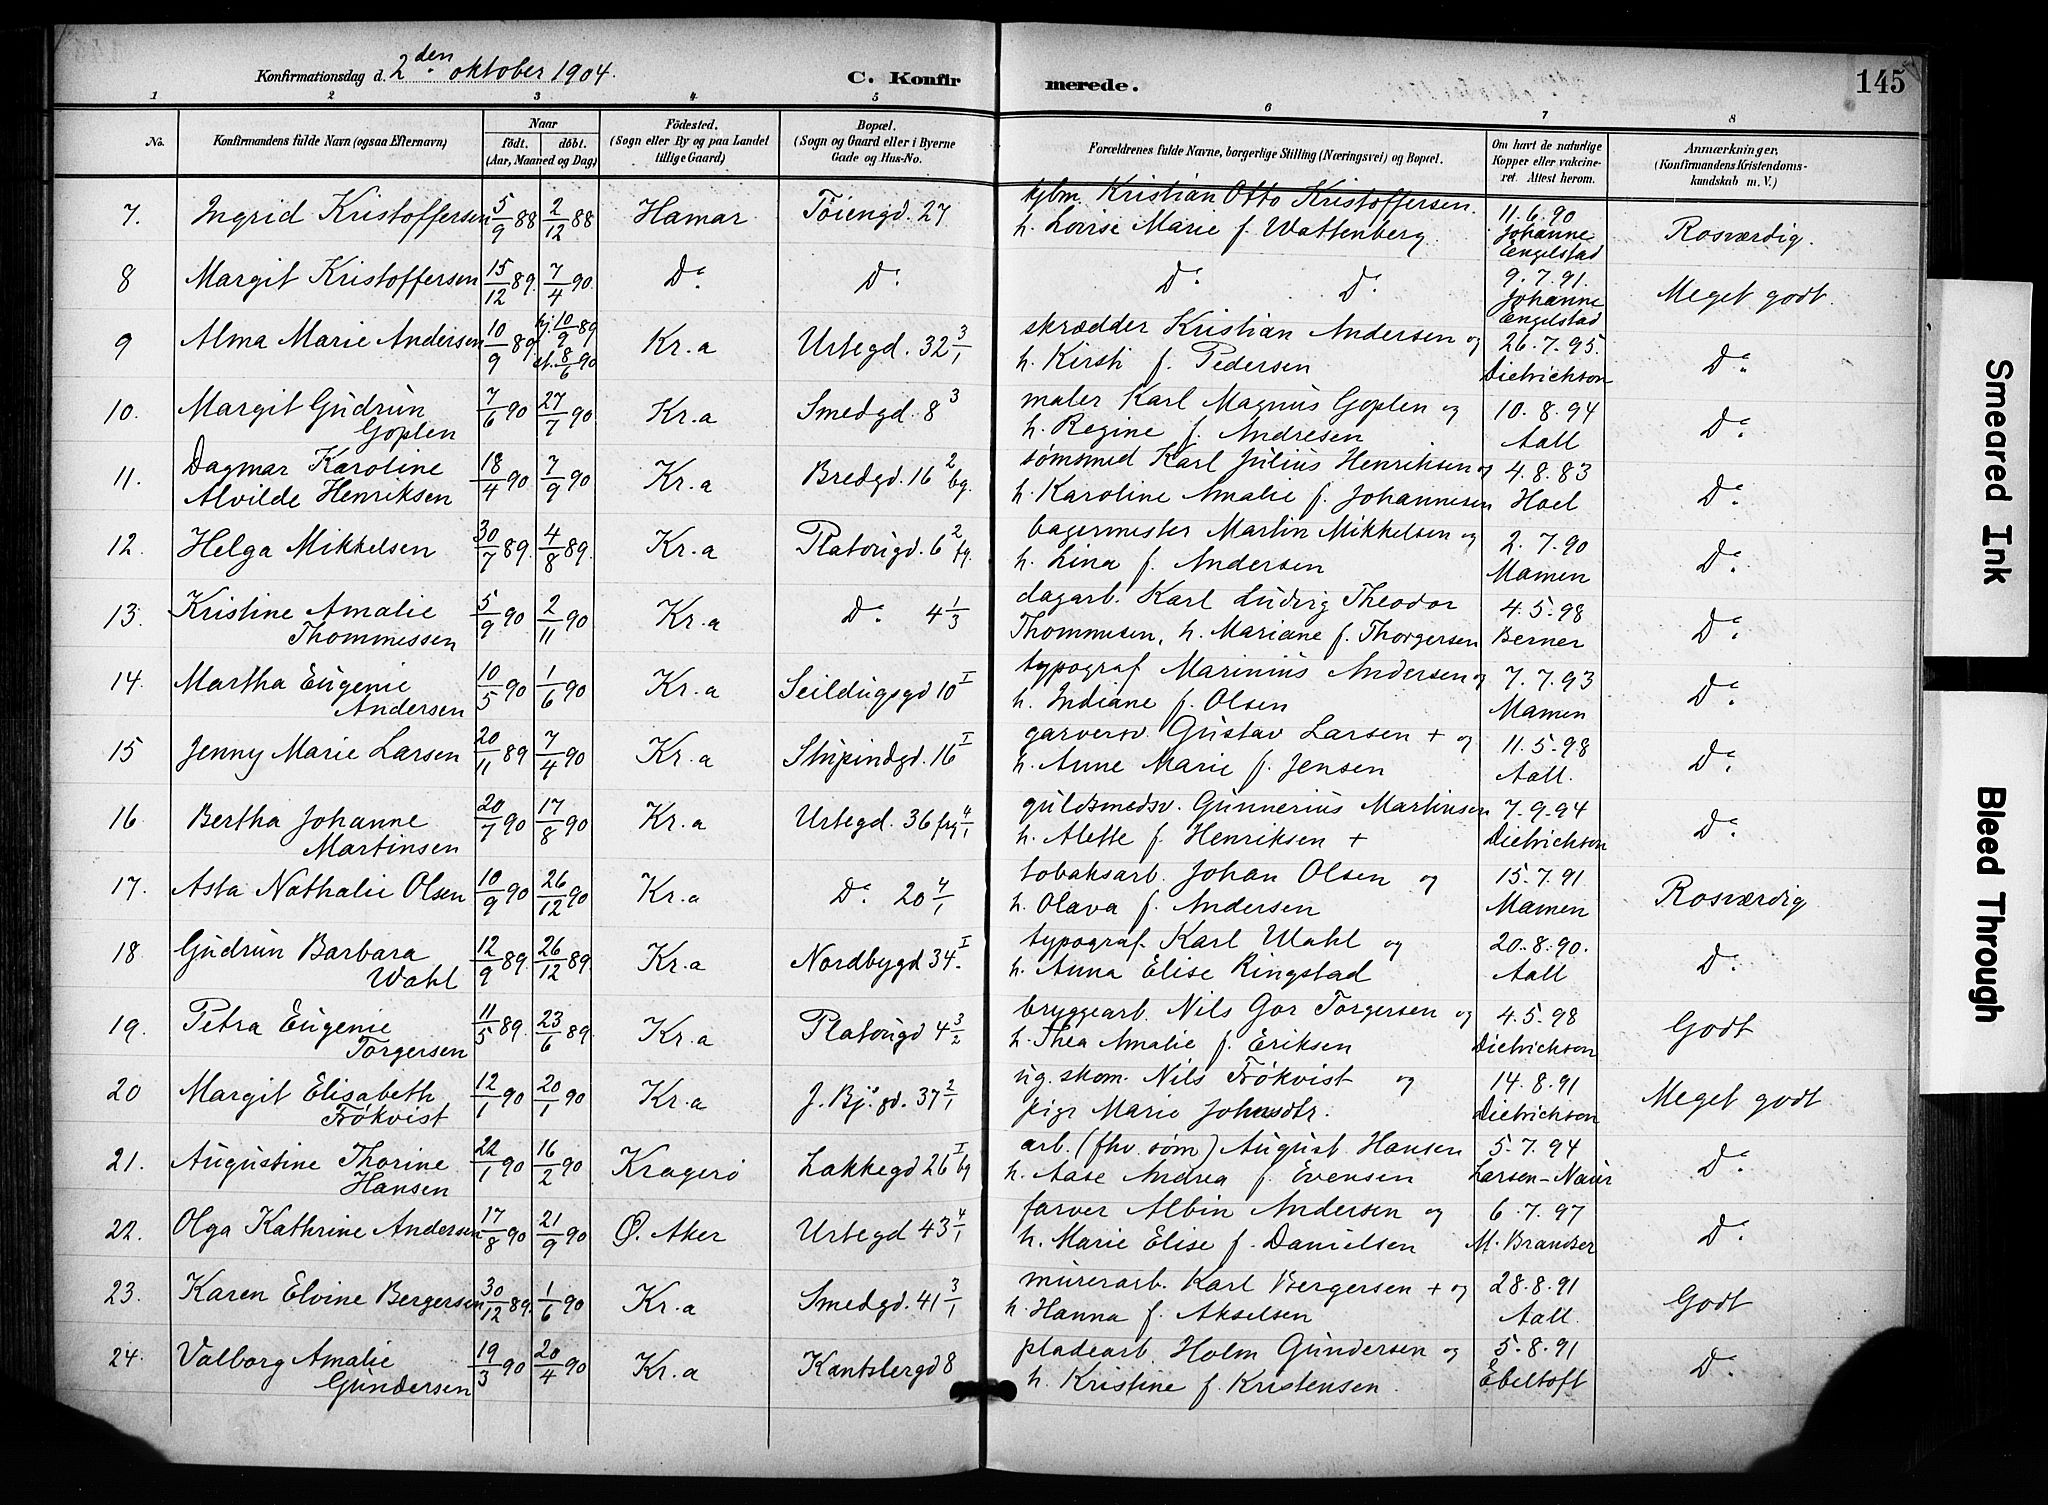 Konfirmationsdag d. 2den oktober 1904.
C. Konfir
merede.
145
1 2 3 4 5 6 7 8
No.
Konfirmandens fulde Navn (ogsaa Efternavn)
Naar
født. døbt.
(Aar, Maaned og Dag)
Fødested.
(Sogn eller By og paa Landet
tillige Gaard)
Bopæl.
(Sogn og Gaard eller i Byerne
Gade og Hus-No.
Forældrenes fulde Navne, borgerlige Stilling (Næringsvei) og Bopæl.
Om havt de naturlige
Kopper eller vakcine-
ret. Attest herom.
Anmærkninger,
(Konfirmandens Kristendoms-
kundskab m. V.)
7. Ingrid Kristoffersen 5/9 88 2/12 88 Hamar Töiengd. 27 kjbm. Kristian Otto Kristoffersen. 11.6.90
h. Lovise Marie f. Wattenberg. Johanne Engelstad Rosværdig.
8 Margit Kristoffersen 15/12 89. 7/4 90. Do. Do. Do. Do. 9.7.91. Johanne Engelstad Meget godt.
9 Alma Marie Andersen 10/9 89 hj. 10/9 89 st. 8/6 90 Kr.a Urtegd. 32 3/1 skrædder Kristian Andersen og 26.7.95.
h. Kirsti f. Pedersen Dietrichson Do.
10. Margit Gudrun 7/6 90 27/7 90. Kr.a Smedgd. 8 3 maler Karl Magnus Goplen og 10.8.94
Goplen h. Regine f. Andresen Aall Do.
11. Dagmar Karoline 18/4 90 7/9 90 Kr.a Bredgd. 16 2 bg. sömsmed Karl Julius Henriksen og 4.8.83
Alvilde Henriksen h. Karoline Amalie f. Johannesen Hoel Do.
12. Helga Mikkelsen 30/7 89. 4/8 89. Kr.a Platougd. 6 2 fg. bagermester Martin Mikkelsen og 2.7.90
h. Lina f. Andersen Mamen Do.
13. Kristine Amalie 5/9 90 2/11 90 Kr.a Do. 4 1/3 dagarb. Karl Ludvig Theodor 4.5.98
Thommessen Thommesen, h. Mariane f. Thorgersen Berner Do.
14. Martha Eugenie 10/5 90 1/6 90 Kr.a Seildugsgd 10 I typograf Marinius Andersen og 7.7.93
Andersen h. Indiane f. Olsen Mamen Do.
15 Jenny Marie Larsen 20/11 89 7/4 90 Kr.a Stupindgd. 16 I garversv. Gustav Larsen + og 11.5.98
h. Anne Marie f. Jensen Aall. Do.
16 Bertha Johanne 20/7 90 17/8 90 Kr.a Urtegd. 36 frg 4/1 guldsmedsv. Gunnerius Martinsen 7.9.94
Martinsen h. Alette f. Henriksen + Dietrichson Do.
17. Asta Nathalie Olsen 10/9 90 26/12 90 Kr.a Do. 20 4/1 tobaksarb. Johan Olsen og 15.7.91
h. Olava f. Andersen Mamen Rosværdig
18. Gudrun Barbara 12/9 89. 26/12 89. Kr.a Nordbygd 34. I typograf. Karl Wahl og 20.8.90.
Wahl h. Anna Elise Ringstad Aall Do.
19. Petra Eugenie 11/5 89. 23/6 89. Kr.a Platougd 4 3/2 bryggearb. Nils Gor Torgersen og 4.5.98
Torgersen h. Thea Amalie f. Eriksen Dietrichson Godt
20 Margit Elisabeth 12/1 90 20/1 90 Kr.a J. Bj. gd. 37 2/1 ug. skom. Nils Frökvist og 14.8.91
Frökvist pige Marie Johnsdtr. Dietrichson Meget godt
21. Augustine Thorine 22/1 90 16/2 90 Kragerö Lakkegd 26 I bg arb. (fhv. söm) August Hansen 5.7.94
Hansen h. Aase Andrea f. Evensen Larsen-Naur Do.
22. Olga Kathrine Andersen 17/8 90 21/9 90 Ø. Aker Urtegd 43 4/1 farver Albin Andersen og 6.7.97
h. Marie Elise f. Danielsen M. Brandser Do.
23. Karen Elvine Bergersen 30/12 89. 1/6 90 Kr.a Smedgd. 41 3/1 murerarb. Karl Bergersen + og 28.8.91
h. Hanna f. Akselsen Aall. Godt
24. Valborg Amalie 19/3 90 20/4 90 Kr.a Kantslergd 8 pladearb. Holm Gundersen og 5.8.91
Gundersen h. Kristine f. Kristensen. Ebeltoft Do.
Smeared Ink
Bleed Through